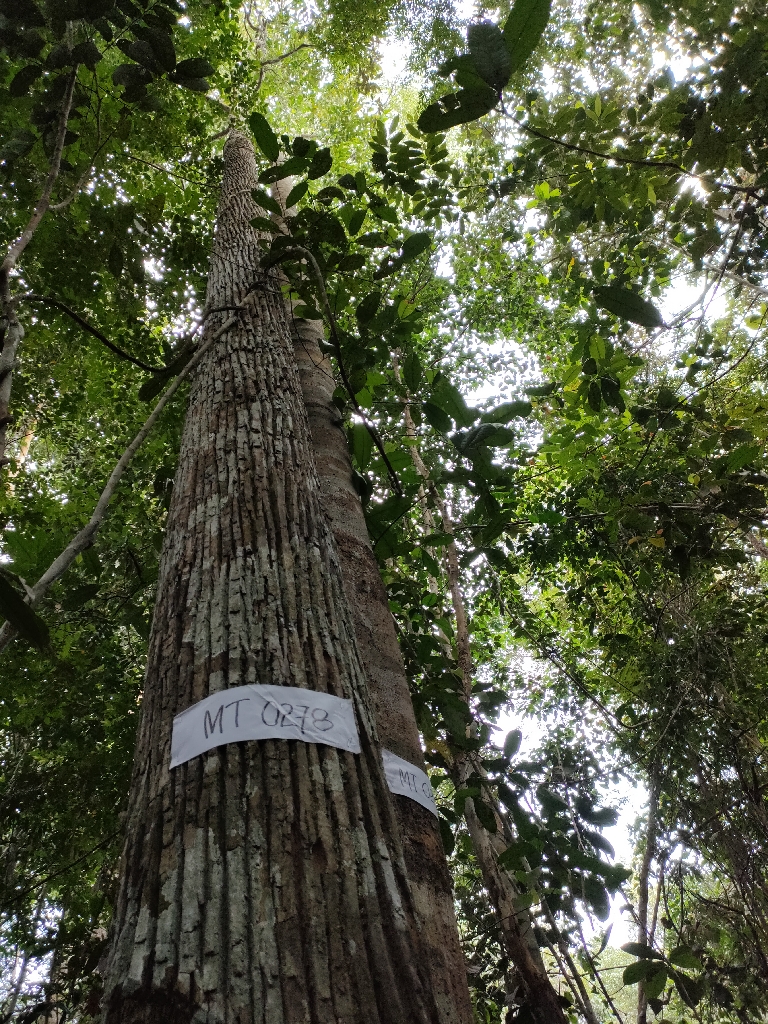 MT 0278
MT